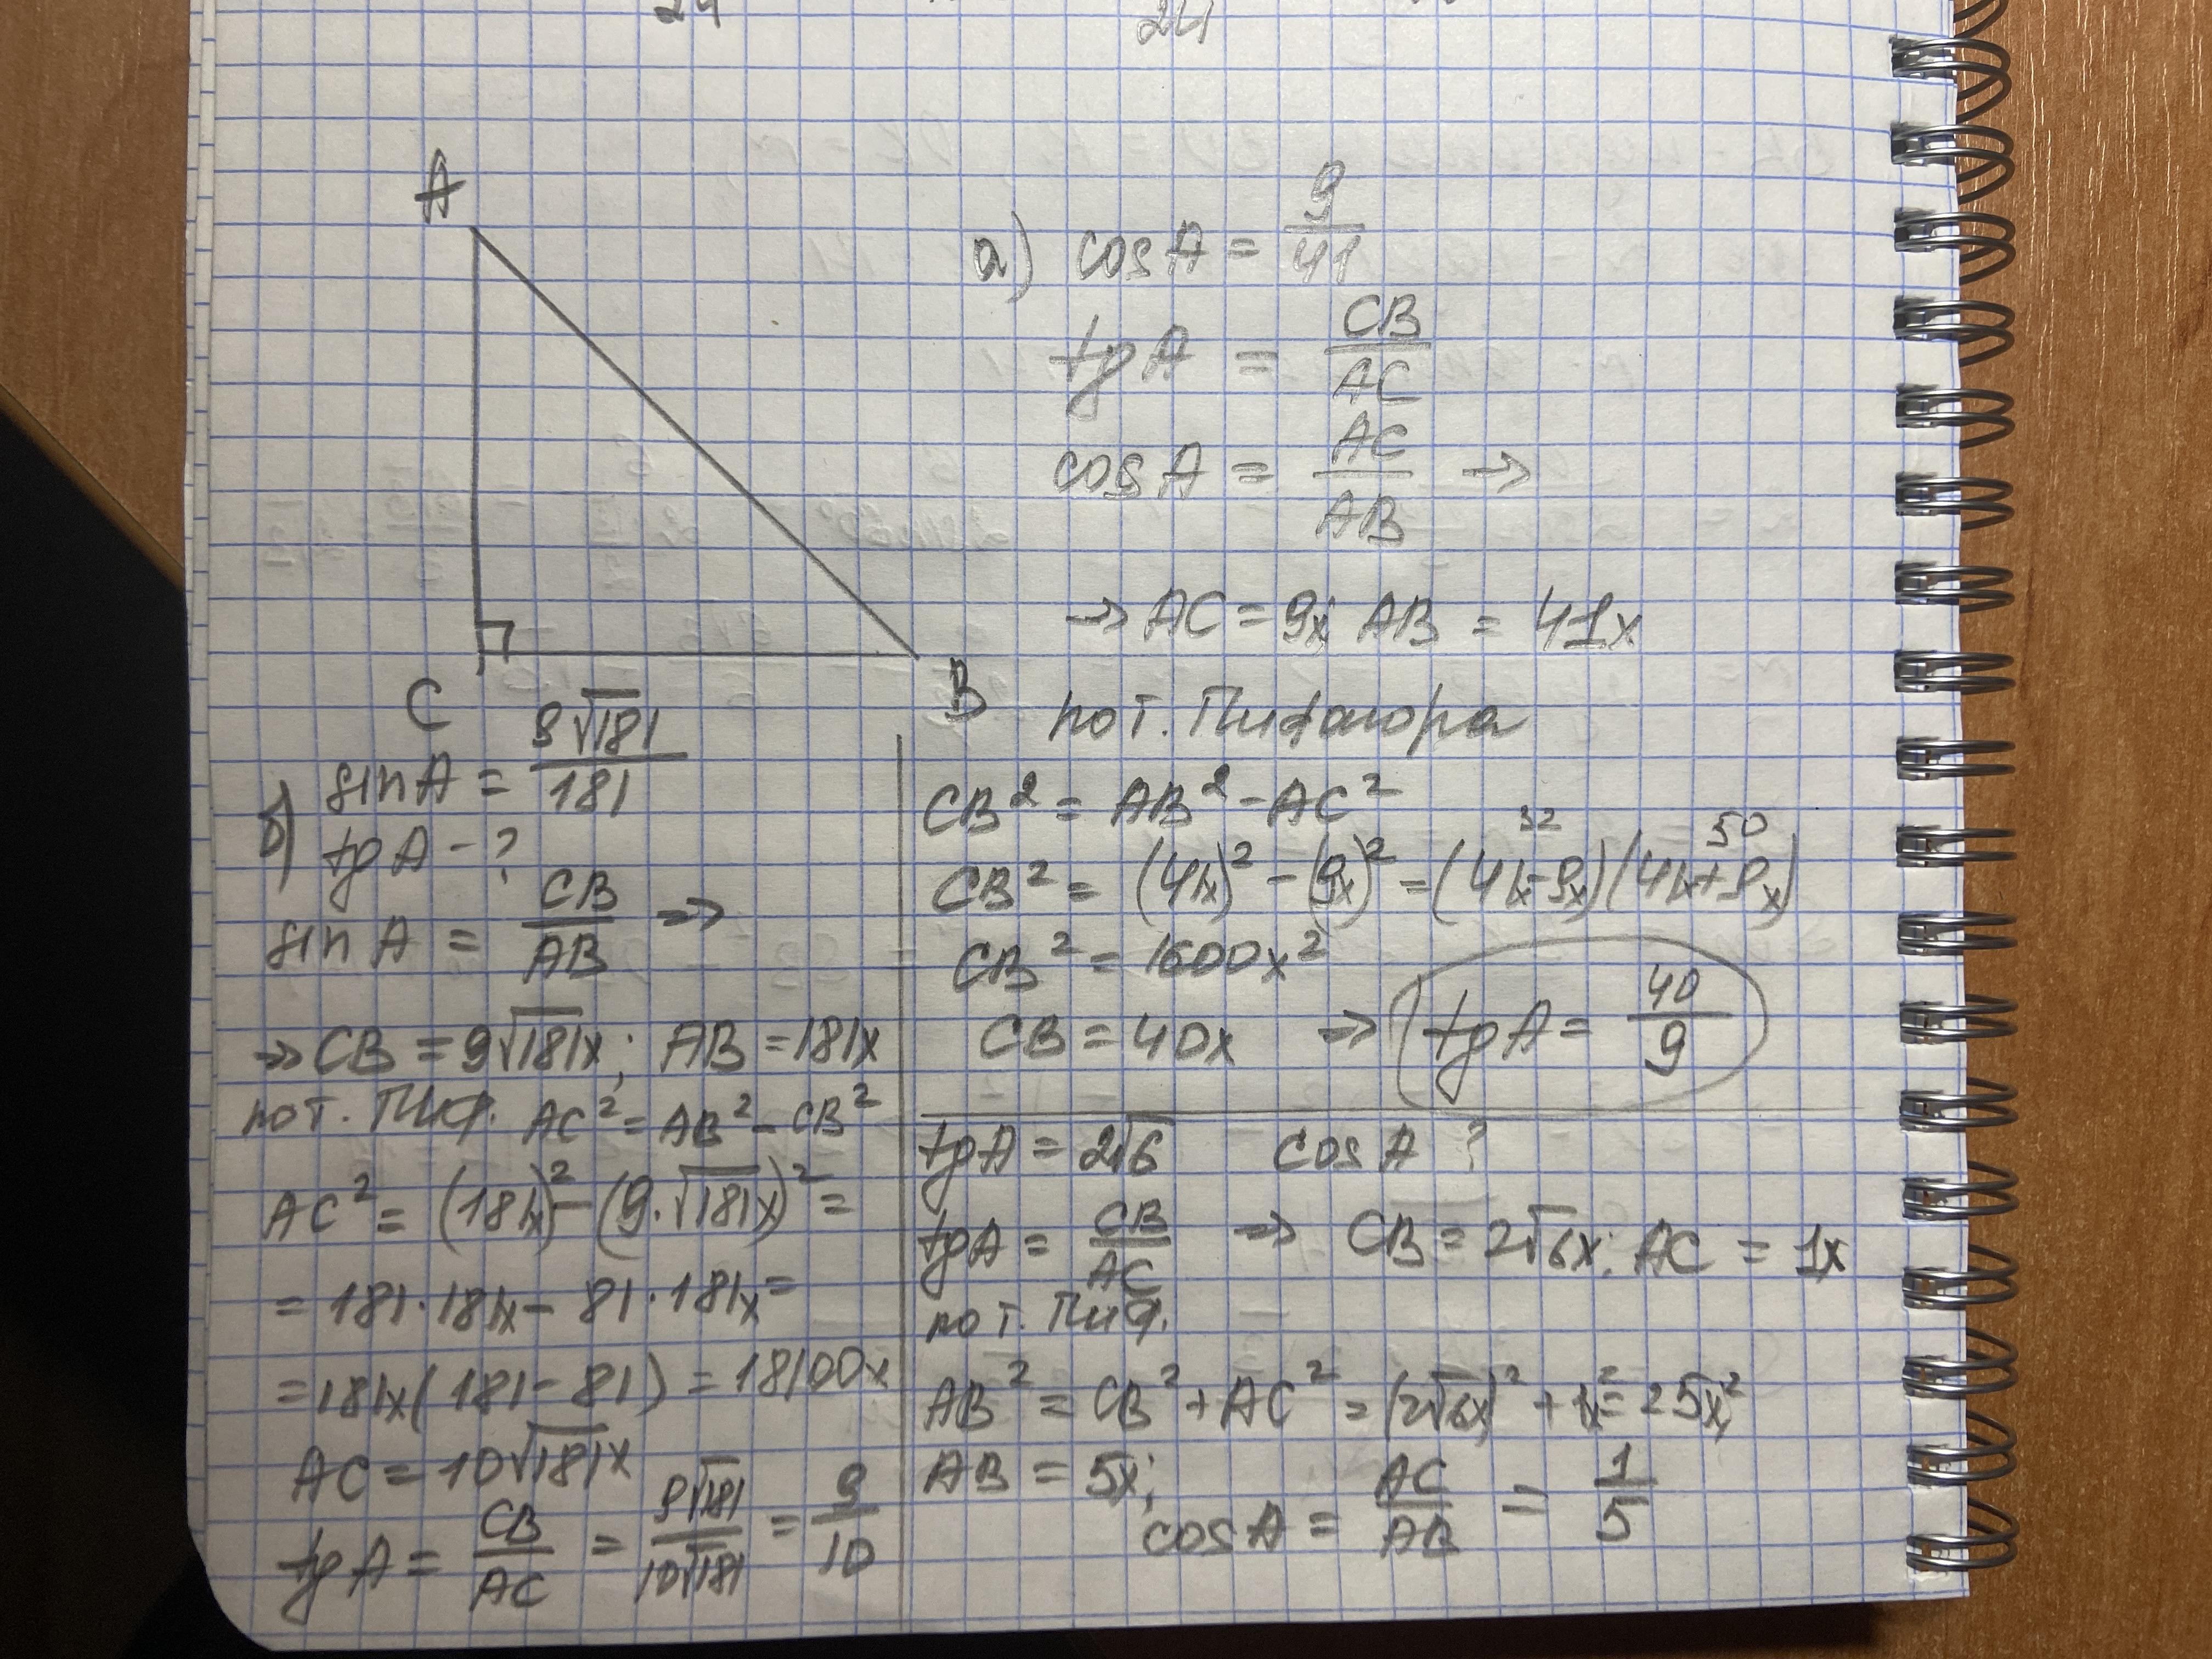 24 24
A
C
B
а) cosA = 9/41
tgA = CB/AC
cosA = AC/AB →
→ AC = 9x; AB = 41x
по т. Пифагора
CB² = AB² - AC²
32 50
CB² = (41x)² - (9x)² = (41x-9x)(41x+9x)
CB² = 1600x²
CB = 40x ⇒ tgA = 40/9
б) sinA = 9√181/181
tgA - ?
sinA = CB/AB ⇒
⇒ CB = 9√181x; AB = 181x
по т. Пиф. AC² = AB² - CB²
AC² = (181x)² - (9·√181x)² =
= 181·181x - 81·181x =
= 181x(181-81) = 18100x
AC = 10√181x
tgA = CB/AC = 9√181/10√181 = 9/10
tgA = 2√6 cosA ?
tgA = CB/AC ⇒ CB = 2√6x; AC = 1x
по т. Пиф.
AB² = CB² + AC² = (2√6x)² + 1x² = 25x²
AB = 5x;
cosA = AC/AB = 1/5